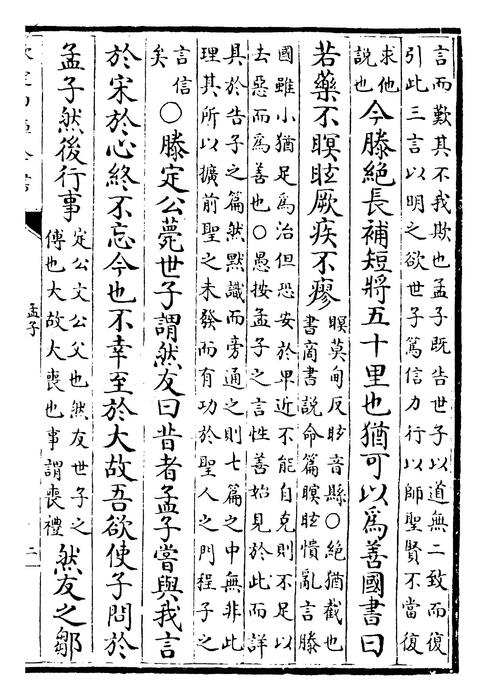 言而歎其不我欺也孟子既告世子以道無二致而復
引此三言以明之欲世子篤信力行以師聖賢不當復
求他
說也
今滕絶長補短將五十里也猶可以爲善國書曰
若藥不瞑眩厥疾不瘳
瞑莫甸反眩音縣○絶猶截也
書商書說命篇瞑眩憒亂言滕
國雖小猶足爲治但恐安於卑近不能自克則不足以
去惡而爲善也○愚按孟子之言性善始見於此而詳
具於告子之篇然默識而旁通之則七篇之中無非此
理其所以擴前聖之未發而有功於聖人之門程子之
言信
矣
○滕定公薨世子謂然友曰昔者孟子嘗與我言
於宋於心終不忘今也不幸至於大故吾欲使子問於
孟子然後行事
定公文公父也然友世子之
傅也大故大喪也事謂喪禮
然友之鄒
孟子
二